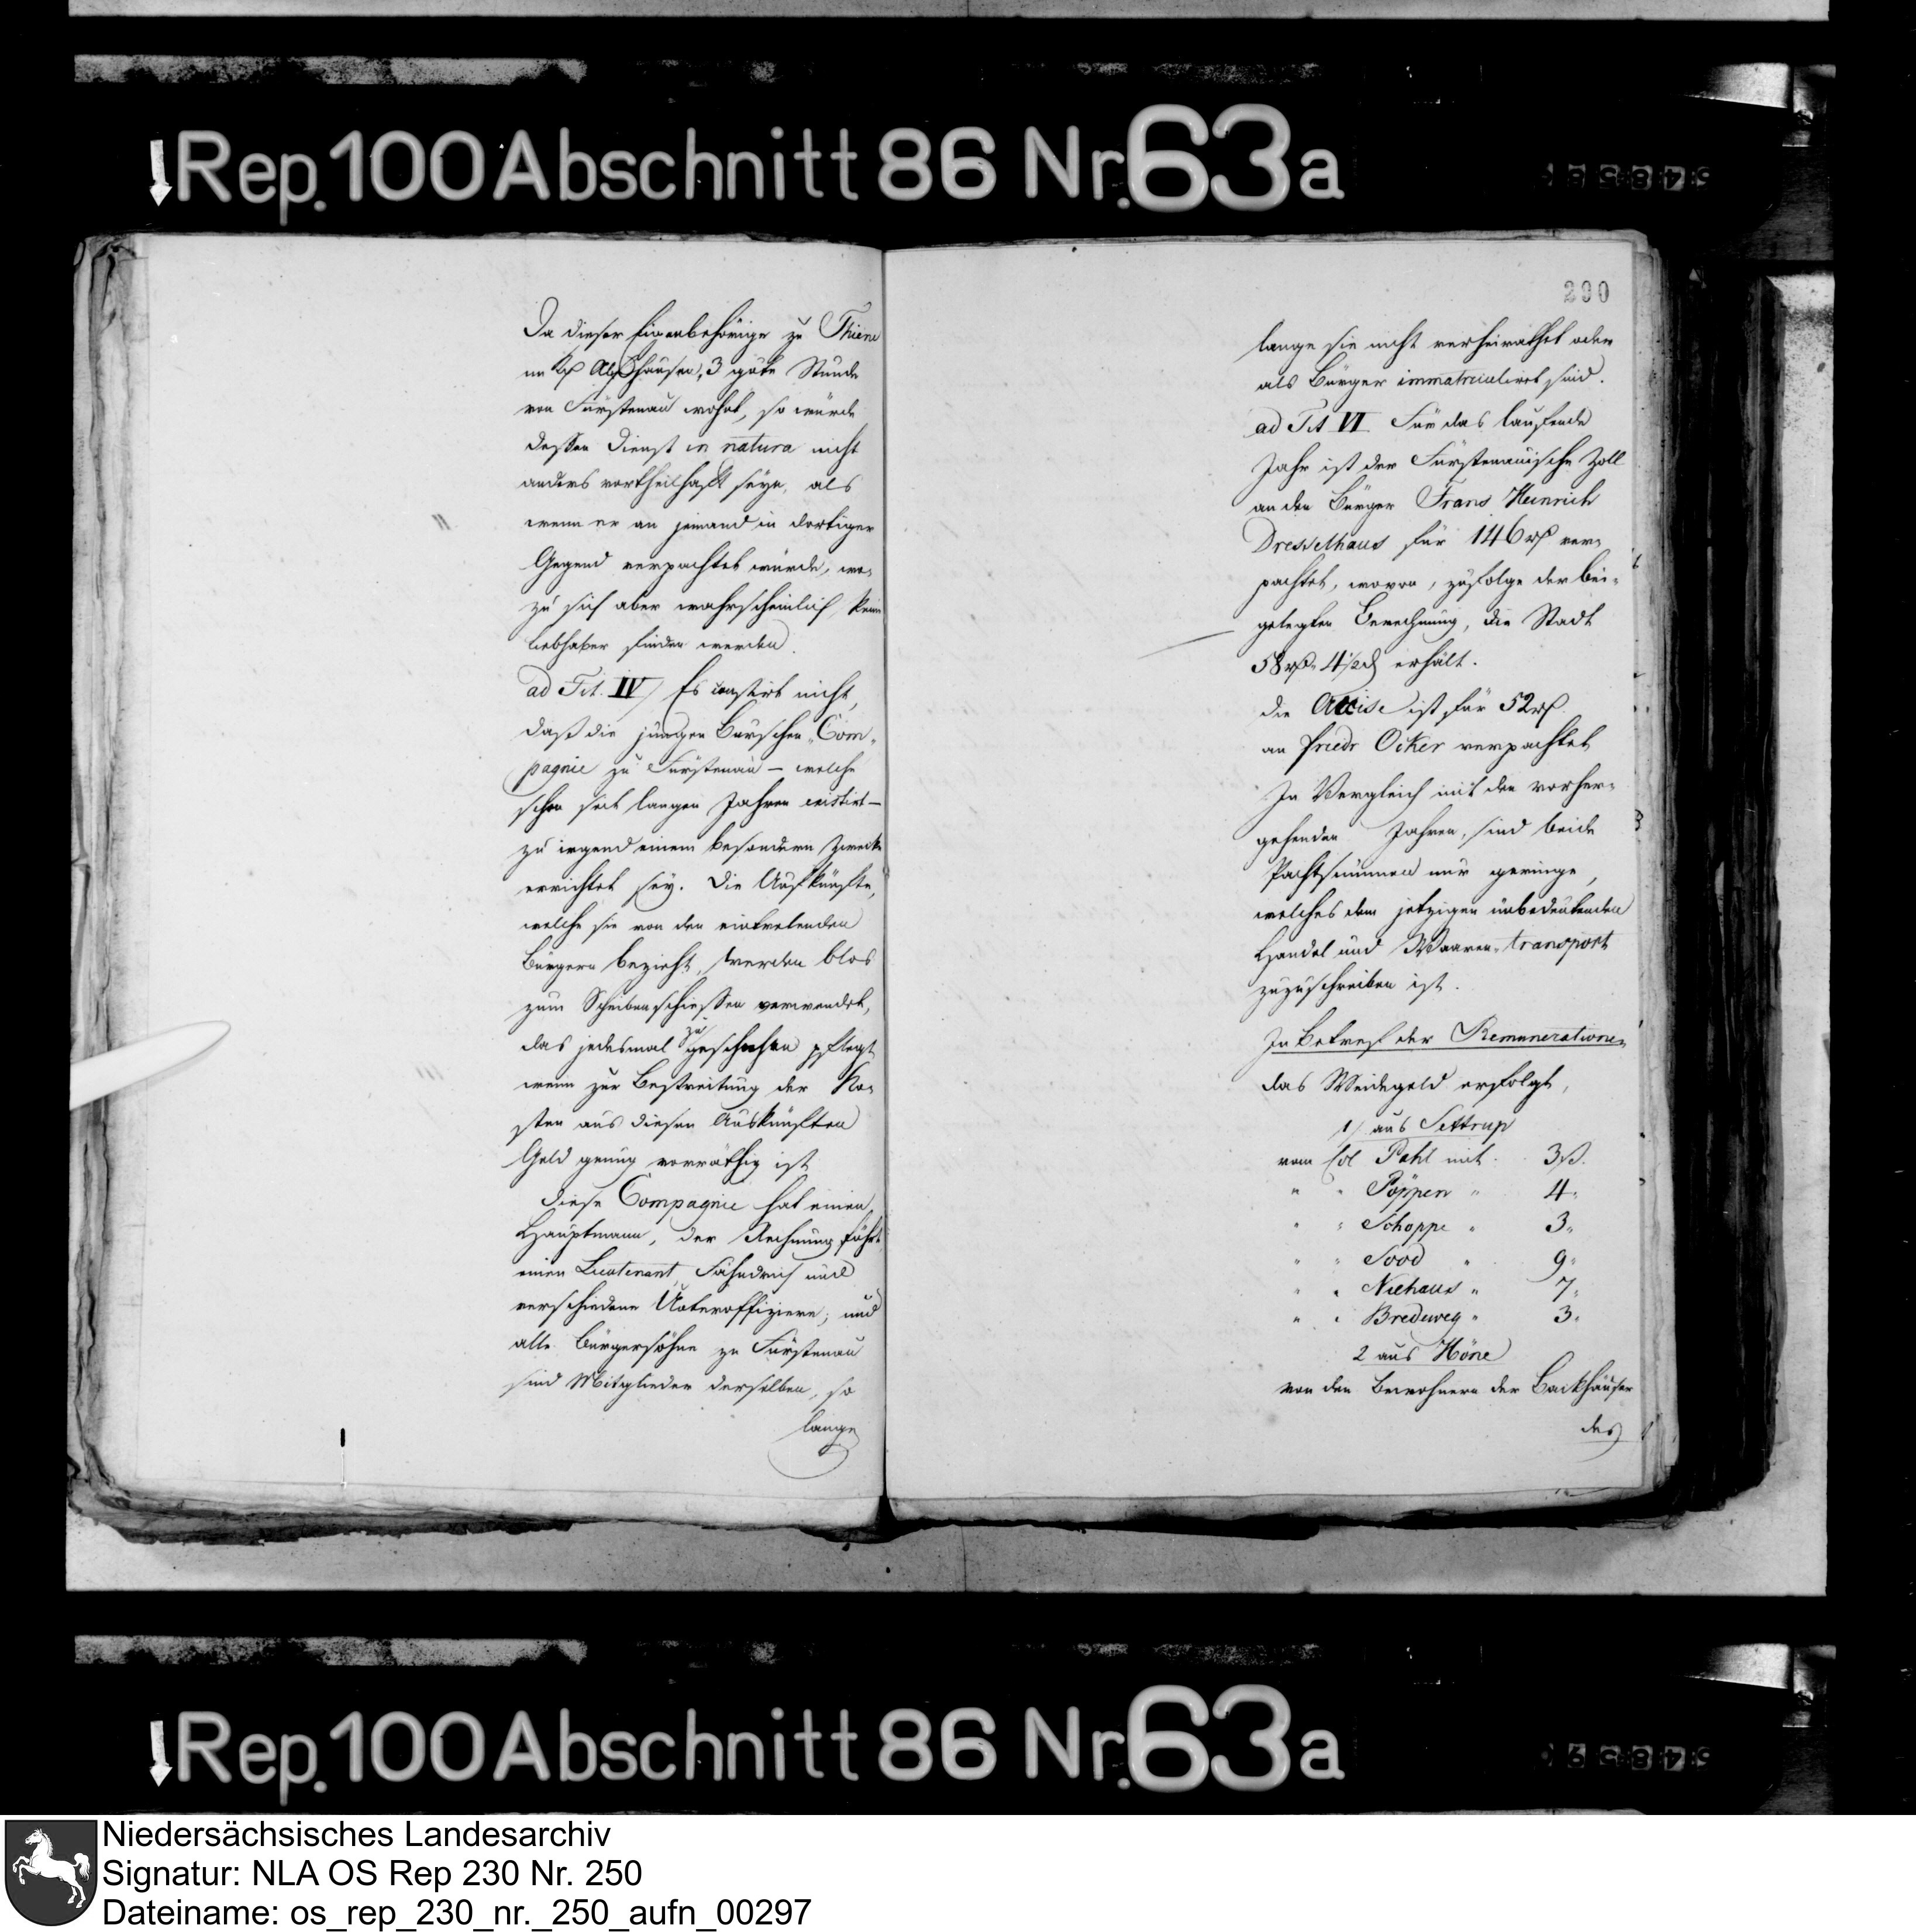 Rep. 100 Abschnitt 86 Nr. 63a
Da dieser Eigenbehörige zu Thiene
im Ksp Alfhausen, 3 gute Stunde
von Fürstenau wohnt, so würde
dessen Dienst in natura nicht
anders vortheilhaft seyn, als
wenn er an jemand in dortiger
Gegend verpachtet würde, wo-
zu sich aber wahrscheinlich kein
Liebhaber finden werden.
ad Tit. IV) Es constirt nicht,
daß die jungen Burschen-Com-
pagnie zu Fürstenau – welche
schon seit langen Jahren existirt –
zu irgend einem besondern Zwecke
errichtet sey. Die Aufkünfte,
welche sie von den eintretenden
Bürgern bezieht, werden blos
zum Scheibenschiessen verwendet,
das jedesmal zu geschehen pflegt
wenn zur Bestreitung der Ko-
sten aus diesen Auskünften
Geld genug vorräthig ist
Diese Compagnie hat einen
Hauptmann, der Rechnung führt
einen Lieutenant, Fähndrich und
verschiedene Unteroffiziere; und
alle Bürgersöhne zu Fürstenau
sind Mitglieder derselben, so
lange
290
lange sie nicht verheirathet oder
als Bürger immatriculirt sind.
ad Tit VI Für das laufende
Jahr ist der Fürstenauische Zoll
an den Bürger Frans Heinrich
Dresselhaus für 146 rß ver-
pachtet, wovon, zufolge der bei-
gelegten Berechnung, die Stadt
58 rß 4½ d erhält.
die Accise ist für 52 rß.
an Friedr Ocker verpachtet
In Vergleich mit den vorher-
gehenden Jahren, sind beide
Pachtsummen nur geringe,
welches dem jetzigen unbedeutenden
Handel und Waaren-transport
zuzuschreiben ist.
In Betref der Remuneration-
das Weidegeld erfolgt,
1/ aus Settrup
vom Col Pahl mit 3 ß.
" " Poppen " 4 "
" " Schoppe " 3 "
" " Sood " 9 "
" " Niehaus " 7 "
" " Bredeweg " 3 "
2 aus Höne
von den Bewohnern der Backhäuser
des
Rep. 100 Abschnitt 86 Nr. 63a
Niedersächsisches Landesarchiv
Signatur: NLA OS Rep 230 Nr. 250
Dateiname: os_rep_230_nr._250_aufn_00297